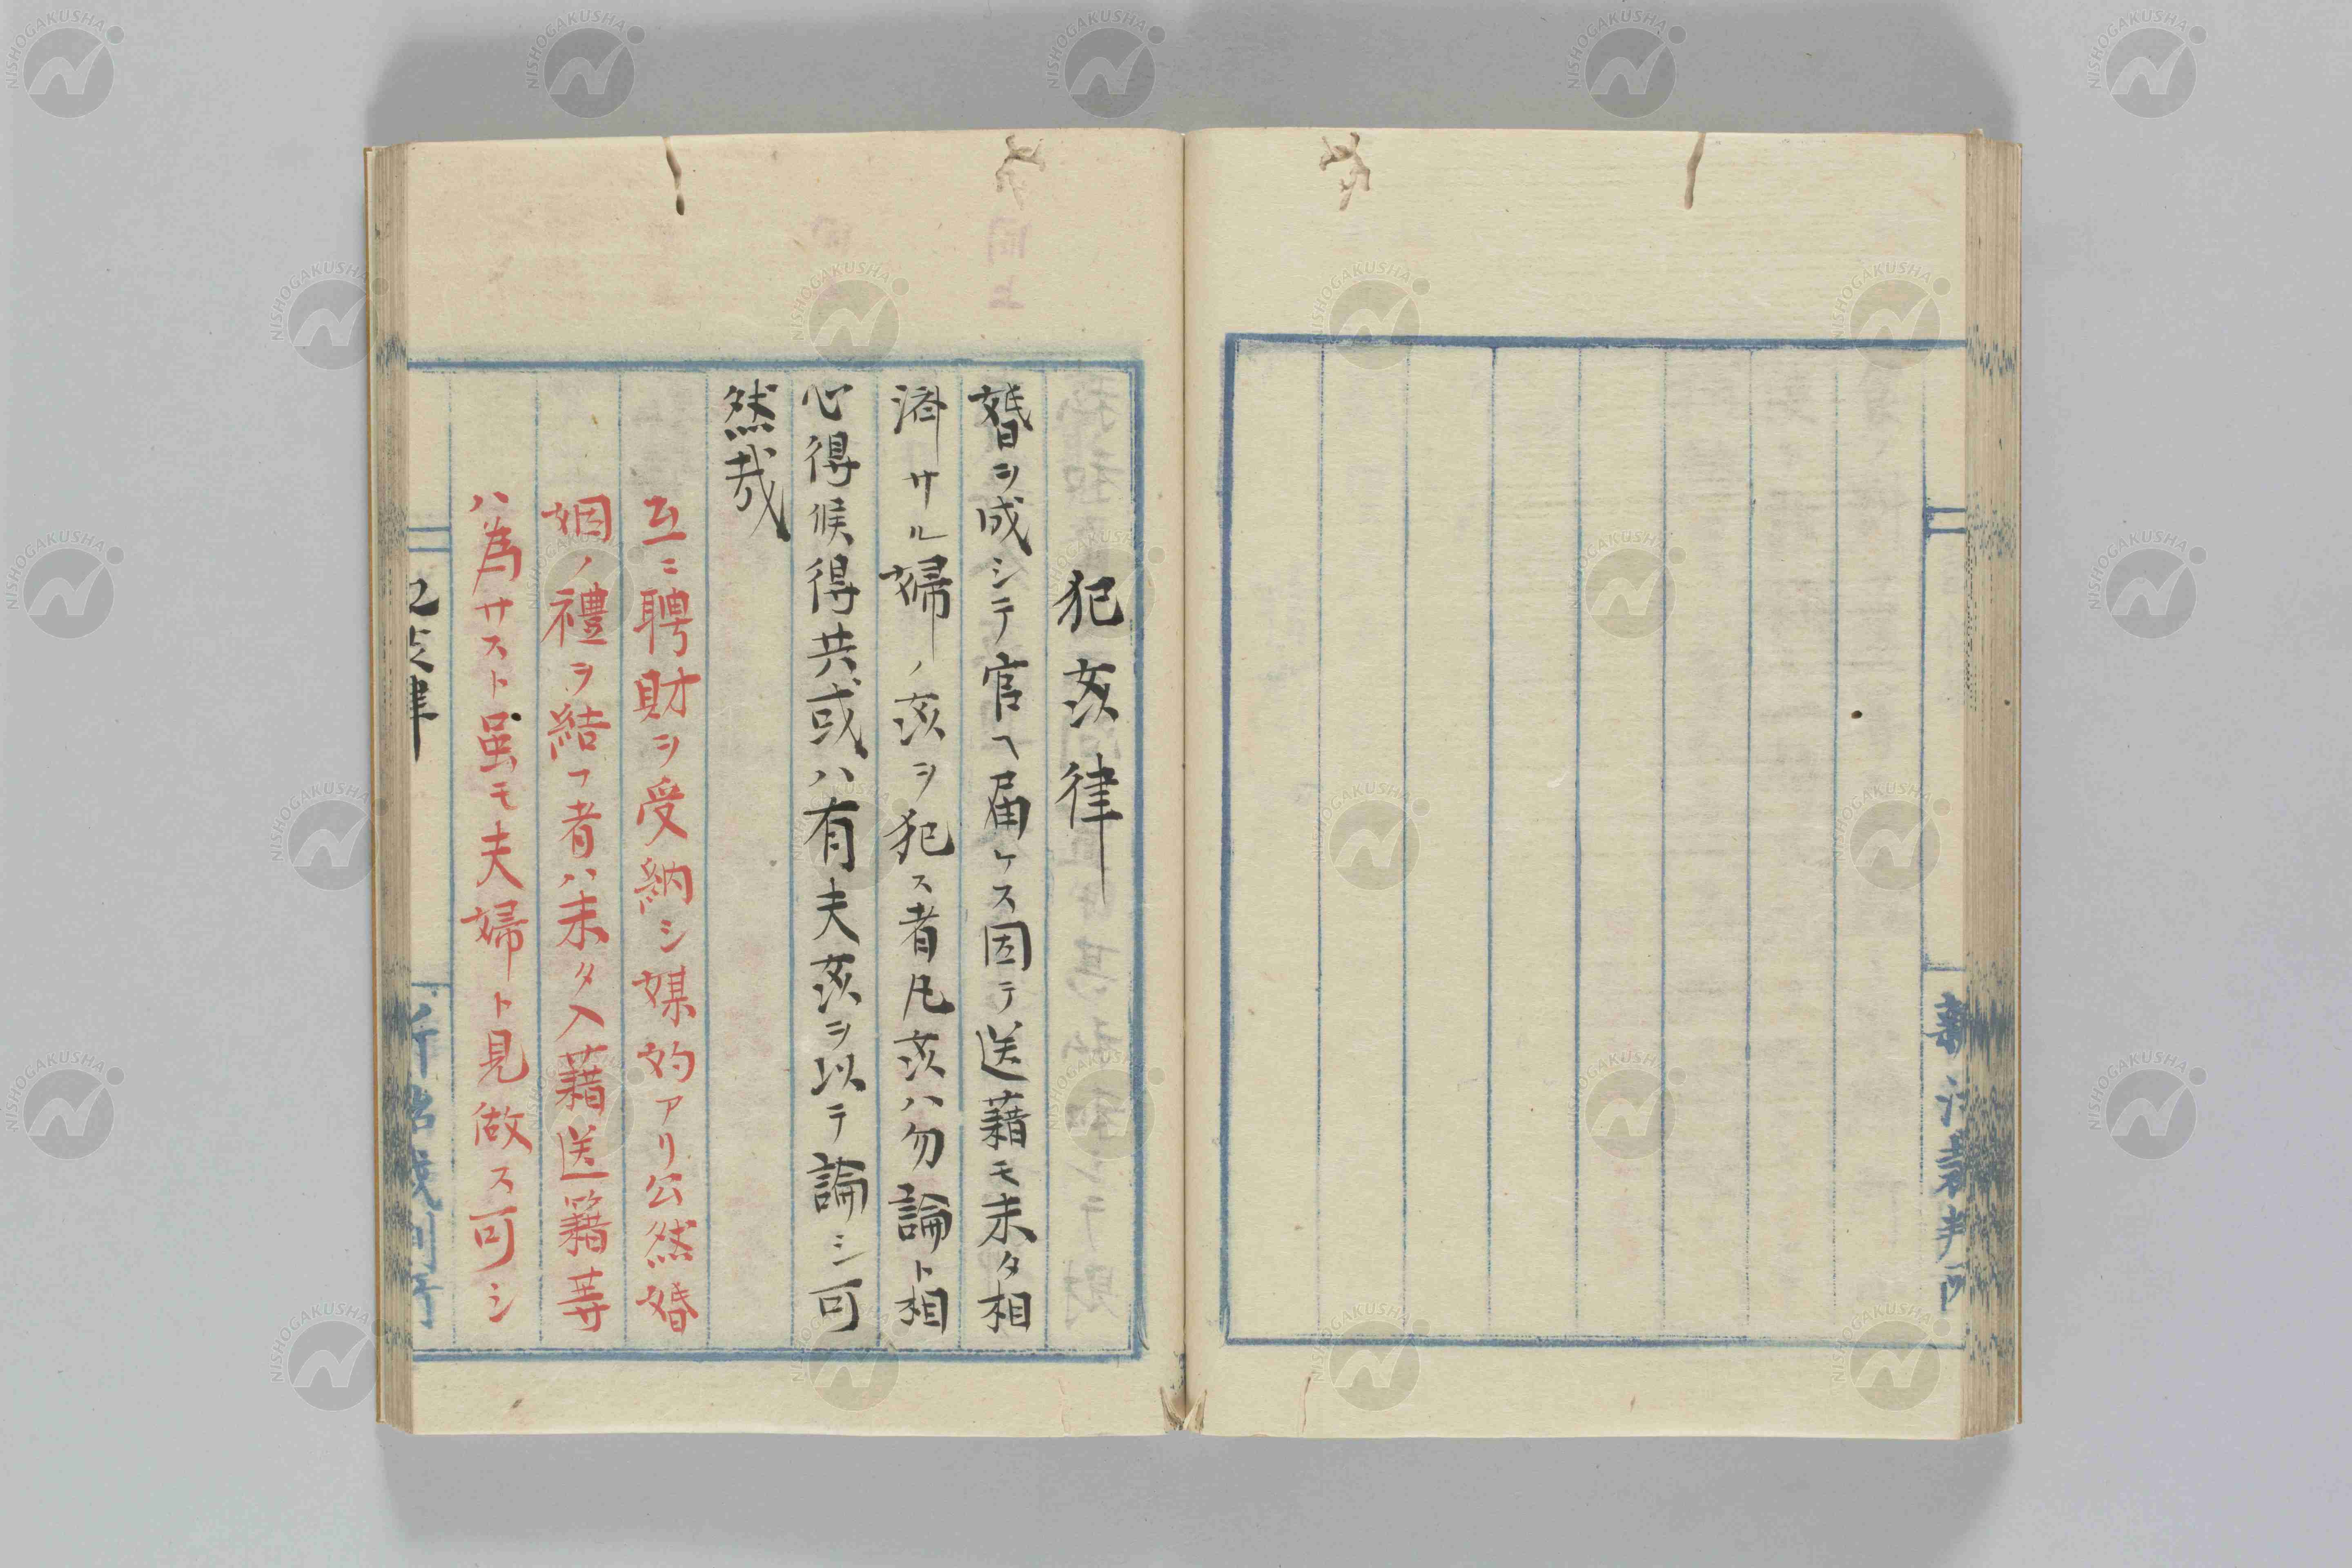 犯姦律
婚ヲ成シテ官ヘ届ケス因テ送藉モ未タ相
済サル婦ノ姦ヲ犯ス者凡姦ハ勿論ト相
心得候得共或ハ有夫姦ヲ以テ論シ可
然哉
互ニ聘財ヲ受納シ媒妁アリ公然婚
姻ノ禮ヲ結フ者ハ未タ入藉送籍等
ハ為サスト虽モ夫婦ト見做ス可シ
NISHOGAKUSHA